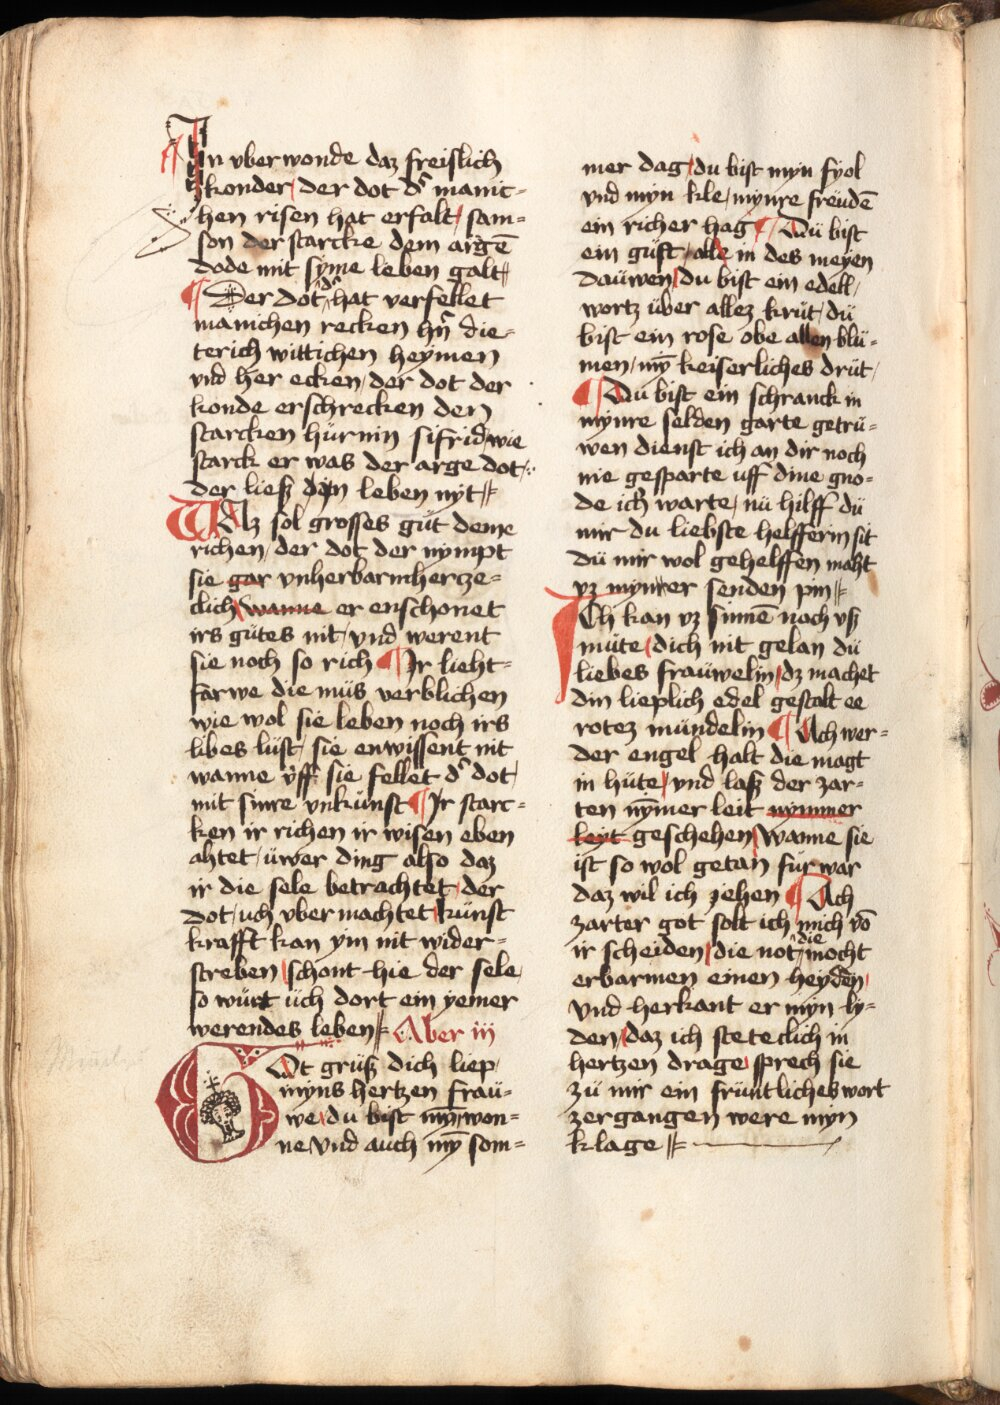 In vber wonde daz freislich
konder / der dot dˀ manic-
hen risen hat erfalt / sam-
son der starcke dem argē
dode mit syme leben galt //
¶ Der dot / dˀ hat verfellet
manichen recken hˀn die-
terich wittichen heymen
vnd her ecken / der dot der
konde erschrecken den
starcken hürnin sifrid / wie
starck er was der arge dot /
der liesz den leben nyt //
Waz sol grosses gůt deme
richen / der dot der nympt
sie gar vnherbarmhercze-
clich / wanne er enschonet
irs gůtes nit / vnd werent
sie noch so rich ¶ Ir lieht-
farwe die můs verblichen
wie wol sie leben noch irs
libes lüst / sie enwissent nit
wanne vff sie fellet dˀ dot /
mit sinre vnkünst ¶ Ir starc-
ken ir richen ir wisen eben
ahtet / üwer ding also daz
ir die sele betrachtet / der
dot / uch vber machtet / künst
krafft kan ym nit wider-
streben / schont hie der sele /
so würt üch dort ein yemer
werendes leben // Aber iii
Got grüsz dich liep /
myns hertzen frau-
we / du bist mȳ won-
ne vnd auch mȳ som-
mer dag / du bist myn fyol
vnd myn kle / mynre freüdē
ein richer hag ¶ Dü bist
ein güft / alle in des meyen
dauwen / du bist ein edell /
wortz über allez krüt / dü
bist ein rose obe allen blü-
men / mȳ keiserliches drüt /
¶ Du bist ein schranck in
mynre selden garte getrü-
wen dienst ich an dir noch
nie gesparte uff dine gno-
de ich warte / nü hilff dü
mir du liebste helfferin sit
dü mir wol gehelffen maht
vz mynrer senden pin //
Ich kan vz sinnē noch vsz
müte / dich nit gelan dü
liebes frauwelin / dz machet
din lieplich edel gestalt ee
rotez mündelin ¶ Ach wer-
der engel halt die magt
in hüte / vnd lasz der zar-
ten nȳmer leit nymmer
leyt geschehen / wanne sie
ist so wol getan für war
daz wil ich jehen ¶ Ach
zarter got solt ich mich vō
ir scheiden / die not / die mocht
erbarmen einen heyden /
vnd herkant er myn ly-
den / daz ich steteclich in
hertzen drage / sprech sie
zü mir ein früntliches wort
zergangen were myn
klage //